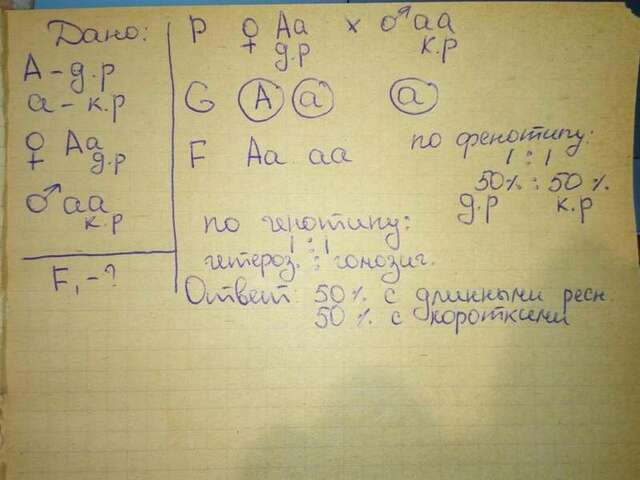 Дано:
А - д.р
а - к.р
♀ Аа
д.р
♂ аа
к.р
F₁ - ?
P ♀ Аа × ♂ аа
д.р к.р
G А а а
F Аа аа
по фенотипу:
1 : 1
50% : 50%
д.р к.р
по генотипу:
1 : 1
гетероз. : гомозиг.
Ответ: 50% с длинными ресн.
50% с короткими